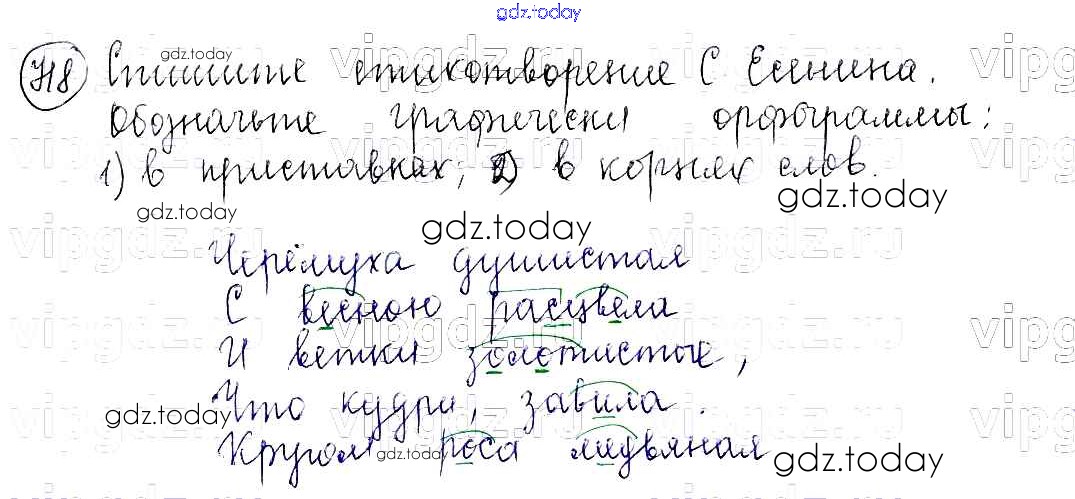 gdz.today
718 Спишите стихотворение С Есенина.
Обозначьте графически орфограммы:
1) в приставках; 2) в корнях слов.
Черёмуха душистая
С весною расцвела
И ветки золотистые,
Что кудри, завила.
Кругом роса мидвяная
gdz.today
gdz.today
gdz.today
gdz.today
gdz.today
gdz.today
gdz.today
gdz.today